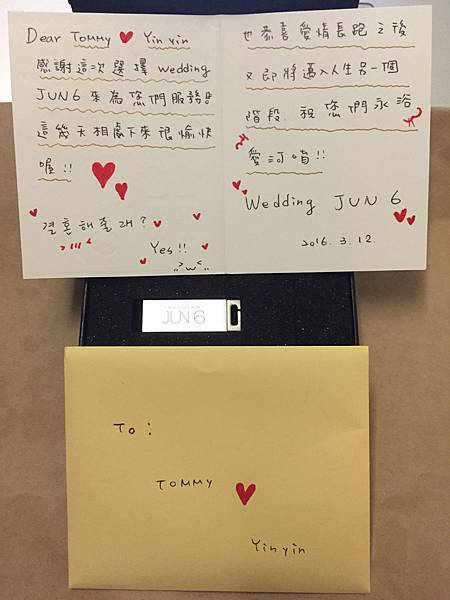 Dear TOMMY ♥ Yin yin
感謝這次選擇 wedding
JUN 6 來為您們服務!!
這幾天相處下來很愉快
喔!!
결혼해줄래?
Yes!!
也恭喜愛情長跑之後
又即將邁入人生另一個
階段. 祝您們永浴
愛河唷!!
Wedding JUN 6
2016. 3. 12.
JUN 6
To:
TOMMY ♥
Yin yin